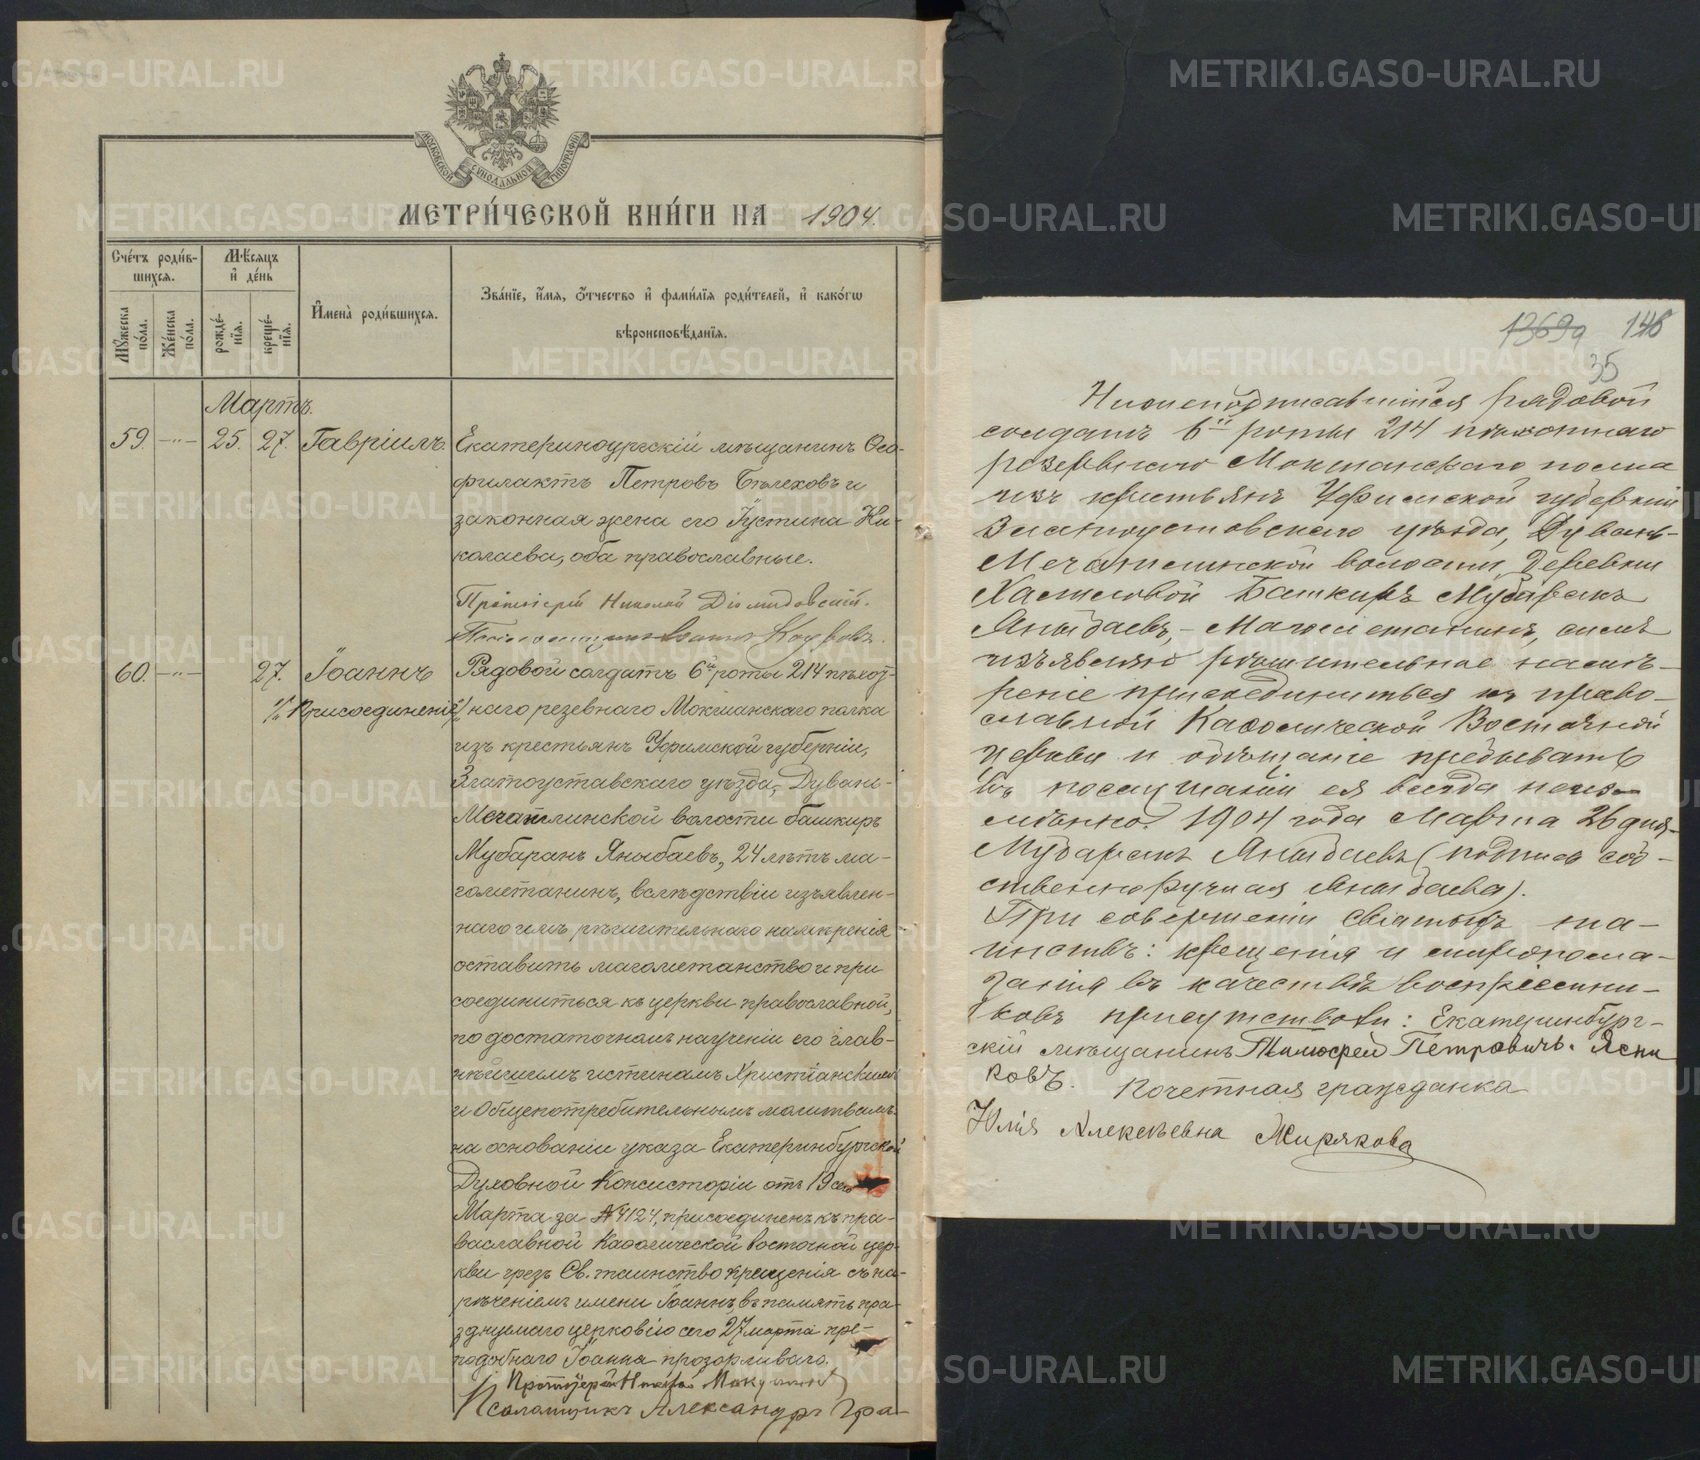 МОСКОВСКОЙ СѴНОДАЛЬНОЙ ТИПОГРАФІИ
МЕТРИ́ЧЕСКОЙ КНИ́ГИ НА 1904.
Сче́тъ роди́в-
шихся.
Мѣ́сяцъ
и҆ де́нь
Мꙋ́жеска
по́ла.
Же́нска
по́ла.
рожде́-
нїя.
креще́-
нїя.
И҆мена̀ роди́вшихся.
Зва́нїе, и҆́мя, о҆́тчество и҆ фами́лїя роди́телей, и҆ како́гѡ
вѣроисповѣ́данїя.
Мартъ.
59. -„- 25. 27. Гавріилъ. Екатеринбургскій мѣщанинъ Ѳео-
филактъ Петровъ Бѣлеховъ и
законная жена его Іустина Ни-
колаева, оба православные.
Протоіерей Николай Діомидовскій.
60. -„- 27. Іоаннъ Рядовой солдатъ 6й роты 214 пѣхот-
Присоединеніе наго резевнаго Мокшанскаго полка
изъ крестьянъ Уфимской губерніи,
Златоуставскаго уѣзда, Дувани-
Мечатлинской волости башкиръ
Мубаранъ Яныбаевъ, 24 лѣтъ ма-
гометанинъ, вслѣдствіи изъявлен-
наго имъ рѣшительнаго намѣренія
оставить магометанство и при
соединиться къ церкви православной,
по достаточномъ наученіи его глав-
нѣйшимъ истинамъ Христіанскимъ
и общепотребительнымъ молитвамъ.
на основаніи указа Екатеринбургской
Духовной Консисторіи отъ 19 сего
Марта за №4124, присоединенъ къ пра-
вославной Каѳолической восточной цер-
кви чрезъ Св. таинство крещенія съ на-
рѣченіемъ имени Іоаннъ, въ память пра-
зднуемаго церковію сего 27 марта пре-
подобнаго Іоанна прозорливаго.
Протоіерей
Псаломщикъ Александръ Гра-
13699 148
35
Нижеподписавшійся рядовой
солдатъ 6й роты 214 пѣхотнаго
резервнаго Мокшанскаго полка
изъ крестьянъ Уфимской губерніи
Златоустовскаго уѣзда, Дувань-
Мечатлинской волости, деревни
Башкиръ Мубаракъ
Яныбаевъ, - Магометанинъ, симъ
изъявляю рѣшительное намѣ-
реніе присоединиться къ право-
славной Каѳолической Восточной
церкви и обѣщаніе пребывать
въ послушаніи ея всегда неиз-
мѣнно. 1904 года Марта 26 дня.
Мубаракъ Яныбаевъ (подпись соб-
ственноручная Яныбаева).
При совершеніи святыхъ та-
инствъ: крещенія и миропома-
занія въ качествѣ воспріемни-
ковъ присутствовали: Екатеринбург-
скій мѣщанинъ Тимофей Петровичъ. Ясни
ковъ. Почетная гражданка
Юлія Алексѣевна Жирякова
METRIKI.GASO-URAL.RU